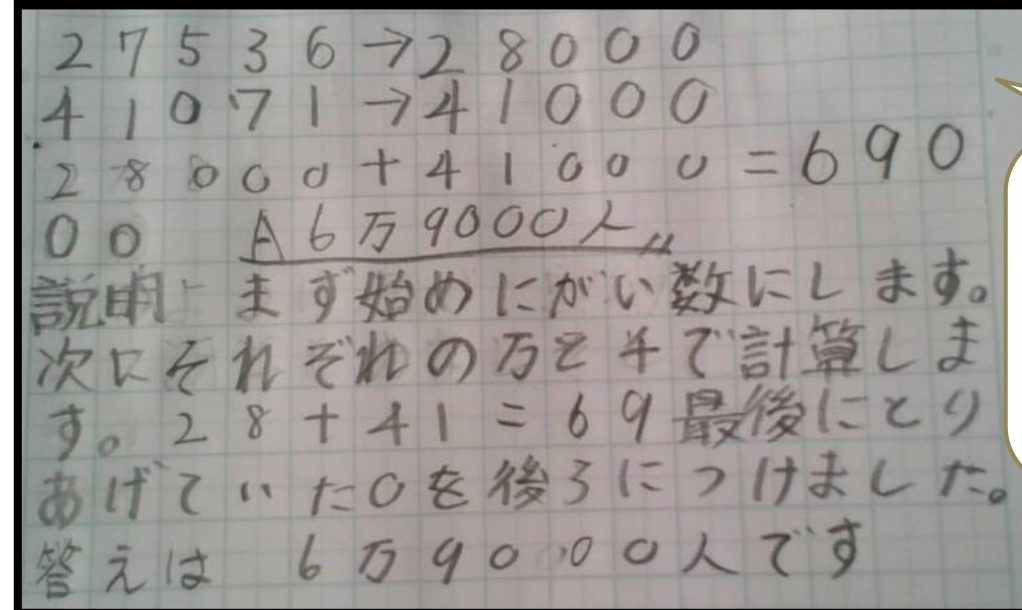 27536→28000
41071→41000
28000+41000=690
00 A6万9000人
説明 まず始めにがい数にします。
次にそれぞれの万と千で計算しま
す。28+41=69最後にとり
あげていた0を後ろにつけました。
答えは 6万9000人です